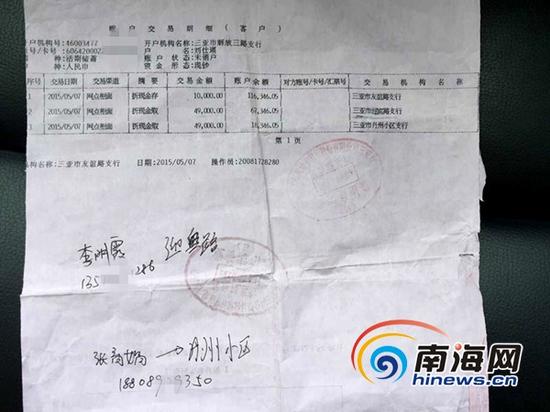 账户交易明细（客户）
开户机构号:46003477 开户机构名称:三亚市解放三路支行
号/卡号:606420002 户 名:刘仕通
种:活期储蓄 账 户 状 态:未销户
种:人民币 资 金 形 态:现钞
序号 交易日期 交易渠道 摘 要 交易金额 账户余额 对方账号/卡号/汇票号 交 易 机 构 名 称
1 2015/05/07 网点柜面 折现金存 10,000.00 116,346.05 三亚市友谊路支行
2 2015/05/07 网点柜面 折现金取 49,000.00 67,346.05 三亚市迎宾路支行
3 2015/05/07 网点柜面 折现金取 49,000.00 18,346.05 三亚市丹州小区支行
第 1 页
机构名称:三亚市友谊路支行 日期:2015/05/07 操作员:20081728280
李明霞 迎宾路
135 286
张 → 丹州小区
南海网
hinews.cn